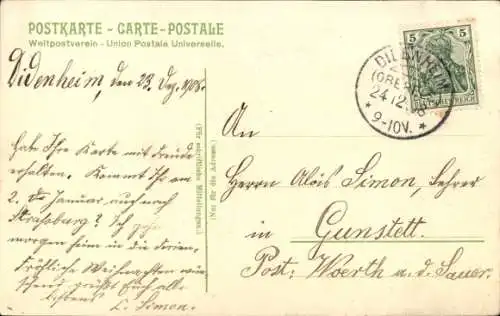 POSTKARTE - CARTE-POSTALE
Weltpostverein - Union Postale Universelle.
Didenheim, den 23. Dez. 1908.
Habe Ihre Karte mit Freude
erhalten. Kommt Ihr am
2. Januar auch nach
Strassburg? Ich gehe
morgen heim in die Ferien.
Fröhliche Weihnachten wün-
schend grüsst Euch alle
bestens L. Simon.
(Für schriftliche Mitteilungen.)
(Nur für die Adresse.)
5 5
DEUTSCHES REICH
24.12.08
* 9-10V. *
An
Herrn Alois Simon, Lehrer
in Gunstett.
Post: Woerth a. d. Sauer.